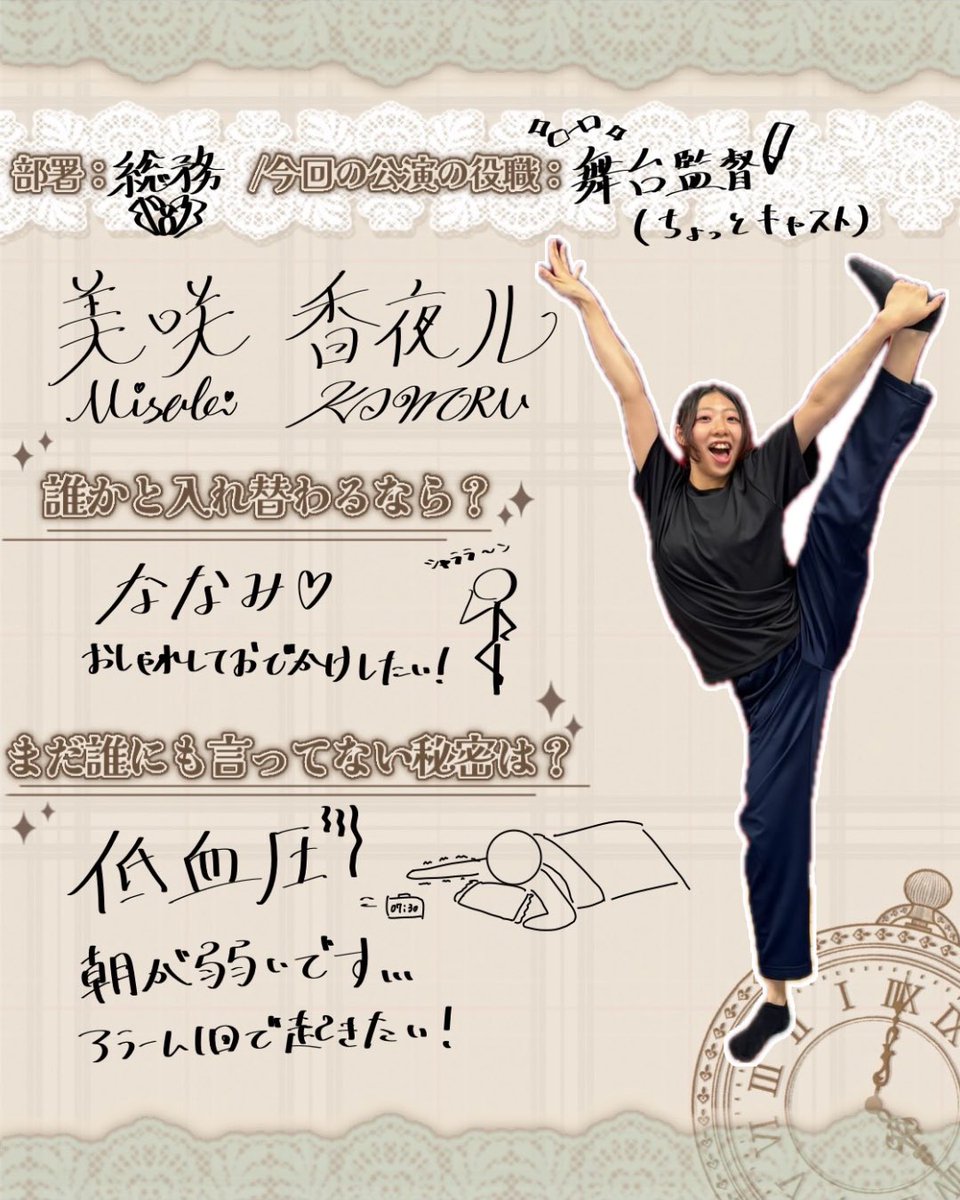 部署：総務 /今回の公演の役職：舞台監督
(ちょっとキャスト)
美咲 香夜ル
Misaki KAWORU
誰かと入れ替わるなら？
シャララ〜ン
ななみ♡
おしゃれしておでかけしたい!
まだ誰にも言ってない秘密は？
低血圧
07:30
朝が弱いです...
アラーム1回で起きたい!
I
II
III
XII
XI
IX